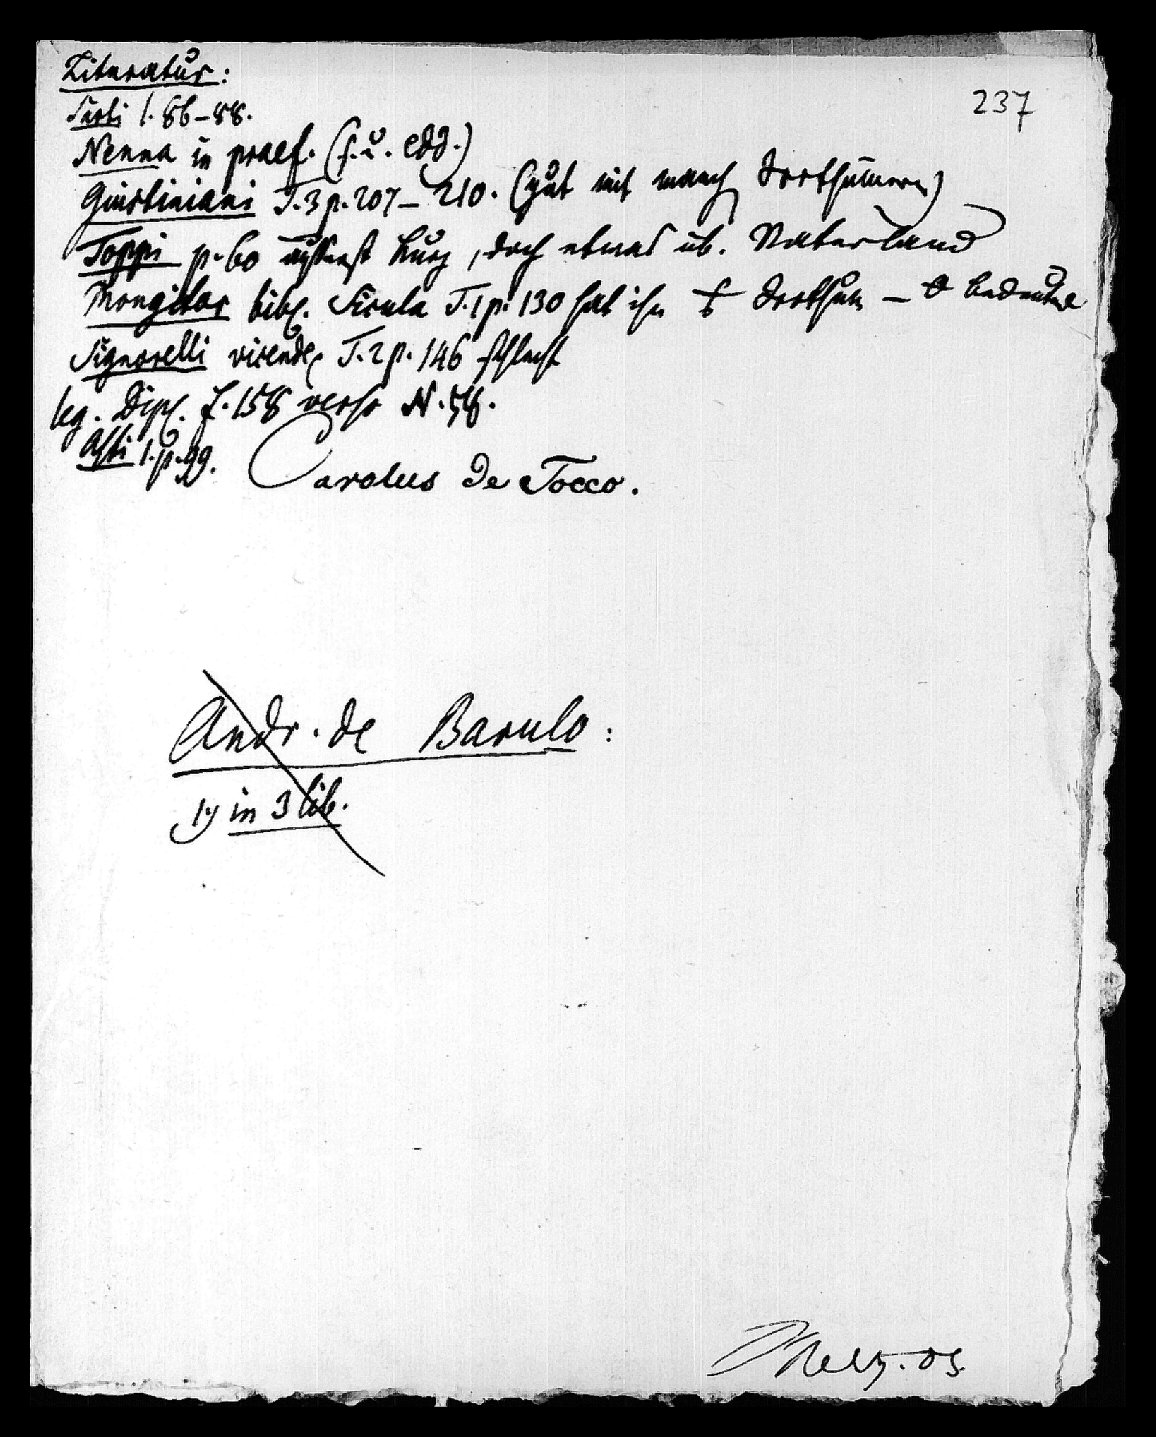 237
Literatur:
Sarti 1. 86–88.
Nenna in praef. (s. u. edd.)
Giustiniani T. 3 p. 207–210. (gut mit manch Irrthümern)
Toppi p. 60 äusserst kurz, doch etwas üb. Vaterland
Mongitor bibl. Sicula T. 1 p. 130 hat ihn Irrthum – bedeutend
Signorelli vicende T. 2 p. 146 schlecht
leg. Dipl. f. 158 verso N. 58.
Asti 1. p. 99.
Carolus de Tocco.
Andr. de Barulo:
1) in 3 lib.